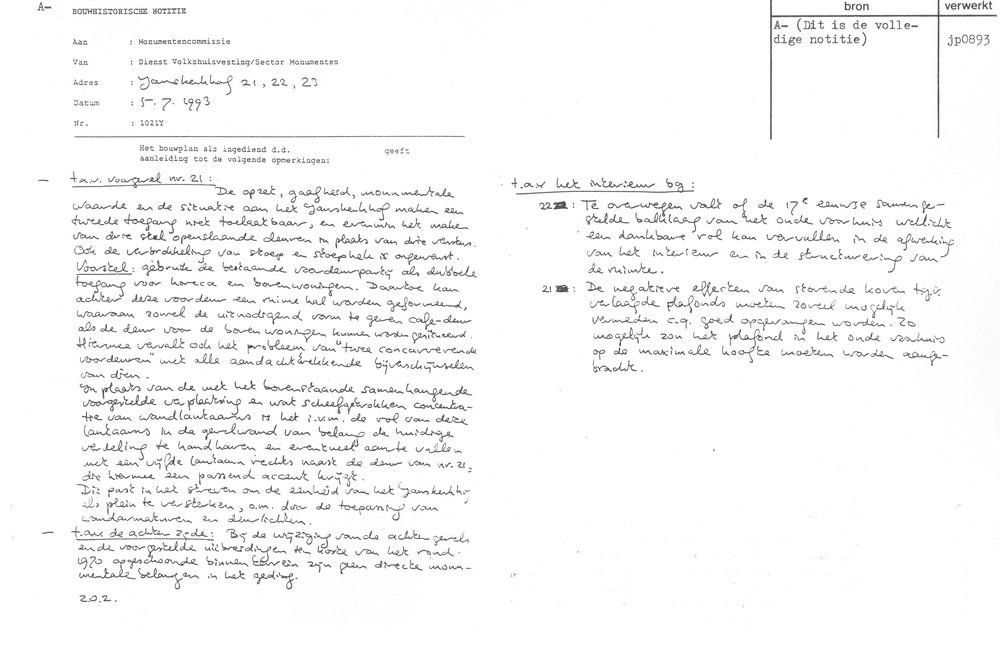 A-
BOUWHISTORISCHE NOTITIE
Aan : Monumentencommissie
Van : Dienst Volkshuisvesting/Sector Monumenten
Adres : Janskerkhof 21, 22, 23
Datum : 5-7-1993
Nr. : 1021Y
Het bouwplan als ingediend d.d. geeft
aanleiding tot de volgende opmerkingen:
— t.a.v. voorgevel nr. 21:
De opzet, gaafheid, monumentale
waarde en de situatie aan het Janskerkhof maken een
tweede toegang niet toelaatbaar, en evenmin het maken
van drie stel openslaande deuren in plaats van drie vensters.
Ook de verbrokkeling van stoep en stoephek is ongewenst.
Voorstel: gebruik de bestaande voordeurpartij als dubbele
toegang voor horeca en bovenwoningen. Daartoe kan
achter deze voordeur een ruime hal worden geformeerd,
waaraan zowel de uitnodigend vorm te geven café-deur
als de deur voor de bovenwoningen kunnen worden gesitueerd.
Hiermee vervalt ook het probleem van "twee concurrerende
voordeuren" met alle aandachttrekkende bijverschijnselen
van dien.
In plaats van de met het bovenstaande samenhangende
voorgestelde verplaatsing en wat scheefgetrokken concentra-
tie van wandlantaarns is het i.v.m. de rol van deze
lantaarns in de gevelwand van belang de huidige
verdeling te handhaven en eventueel aan te vullen
met een vijfde lantaarn rechts naast de deur van nr. 21,
die hiermee een passend accent krijgt.
Dit past in het streven om de eenheid van het Janskerkhof
als plein te versterken, o.m. door de toepassing van
wandarmaturen en deurlichten.
— t.a.v. de achterzijde: Bij de wijziging van de achtergevels
en de voorgestelde uitbreidingen ten koste van het rond
1970 opgeschoonde binnenterrein zijn geen directe monu-
mentale belangen in het geding.
z.o.z.
bron
verwerkt
A- (Dit is de volle-
dige notitie)
jp0893
t.a.v. het interieur bg:
22: Te overwegen valt of de 17e eeuwse samenge-
stelde balklaag van het oude voorhuis wellicht
een dankbare rol kan vervullen in de afwerking
van het interieur en in de structurering van
de ruimte.
21: De negatieve effecten van storende koven t.g.v.
verlaagde plafonds moeten zoveel mogelijk
vermeden c.q. goed opgevangen worden. Zo
mogelijk zou het plafond in het oude voorhuis
op de maximale hoogte moeten worden aange-
bracht.